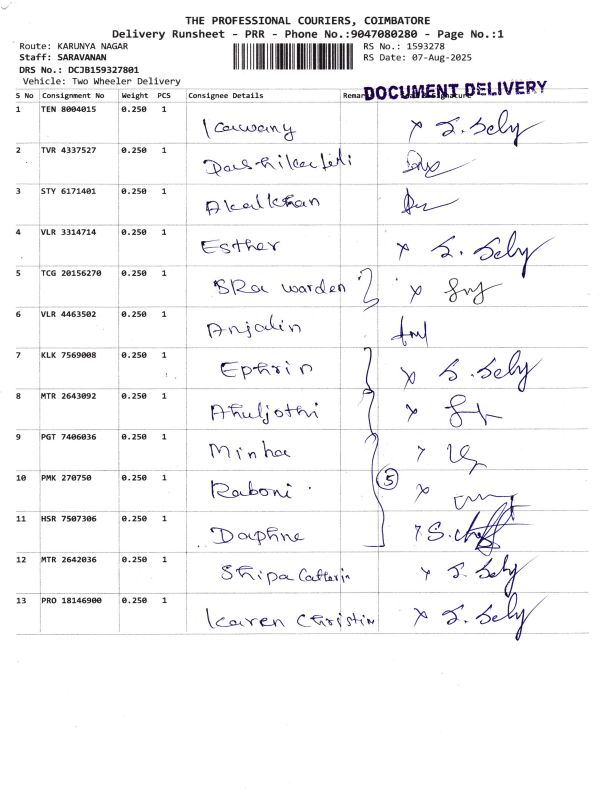 THE PROFESSIONAL COURIERS, COIMBATORE
Delivery Runsheet - PRR - Phone No.:9047080280 - Page No.:1
Route: KARUNYA NAGAR RS No.: 1593278
Staff: SARAVANAN RS Date: 07-Aug-2025
DRS No.: DCJB159327801
Vehicle: Two Wheeler Delivery
DOCUMENT DELIVERY
S No Consignment No Weight PCS Consignee Details
1 TEN 8004015 0.250 1 x S. Sely
2 TVR 4337527 0.250 1
3 STY 6171401 0.250 1
4 VLR 3314714 0.250 1 Esther x S. Sely
5 TCG 20156270 0.250 1 warden x
6 VLR 4463502 0.250 1 Anjalin
7 KLK 7569008 0.250 1 Ephrin x S. Sely
8 MTR 2643092 0.250 1 x
9 PGT 7406036 0.250 1 Minha
10 PMK 270750 0.250 1 Raboni 5 x
11 HSR 7507306 0.250 1 Daphne
12 MTR 2642036 0.250 1 Shipa x S. Sely
13 PRO 18146900 0.250 1 Karen Christin x S. Sely